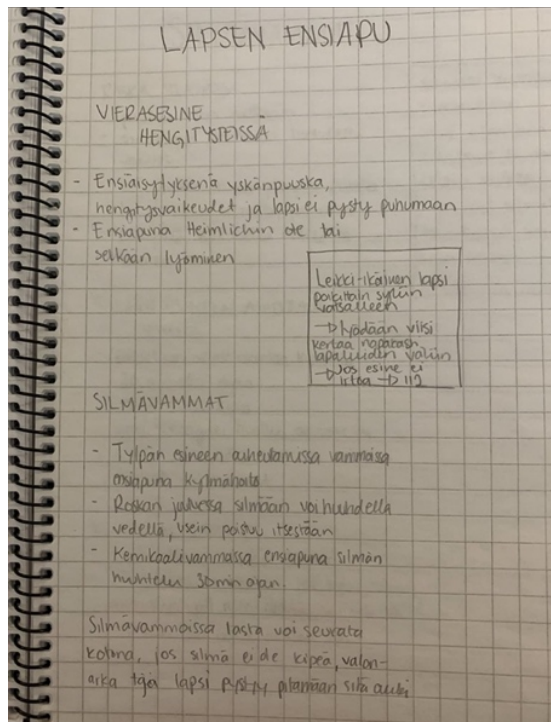 LAPSEN ENSIAPU
VIERASESINE
HENGITYSTEISSÄ
- Ensiäisytyksenä yskänpuuska,
hengitysvaikeudet ja lapsi ei pysty puhumaan
- Ensiapuna Heimlichin ote tai
selkään lyöminen
Leikki-ikäinen lapsi
poikittain syliin
vatsalleen
→ lyödään viisi
kertaa napakasti
lapaluiden väliin
→ Jos esine ei
irtoa → 112
SILMÄVAMMAT
- Tylpän esineen aiheutamissa vammoissa
ensiapuna kylmähoito
- Roskan jäädessä silmään voi huuhdella
vedellä, usein poistuu itsestään
- Kemikaalivammassa ensiapuna silmän
huuhtelu 30min ajan.
Silmävammoissa lasta voi seurata
kotona, jos silmä ei ole kipeä, valon-
arka ja lapsi pystyy pitämään sitä auki